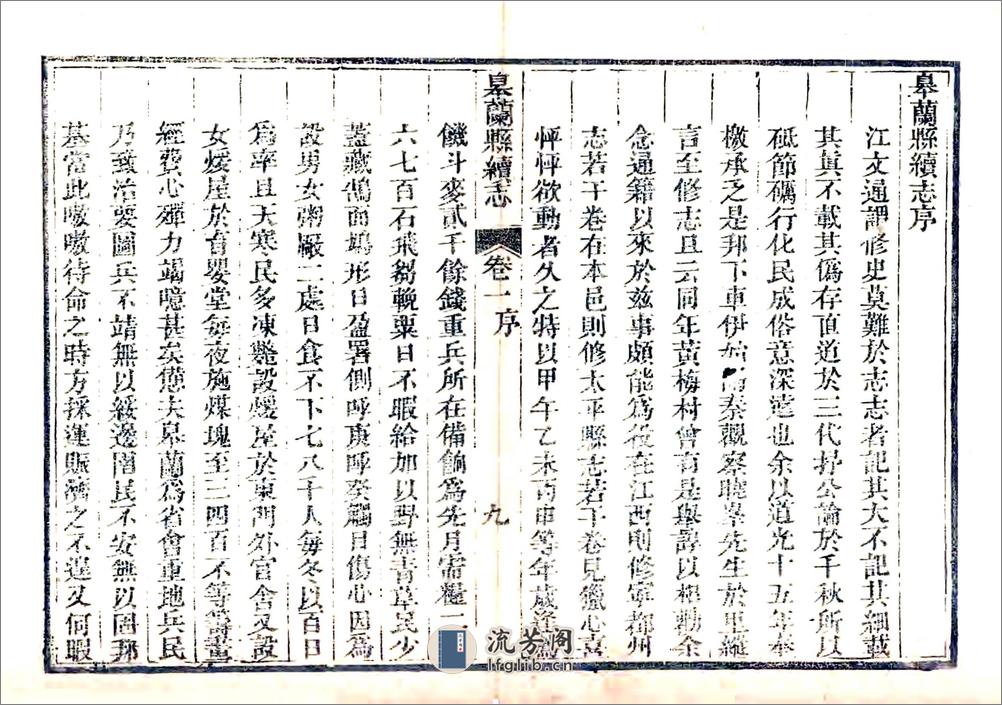 皋蘭縣續志序
江文通謂修史莫難於志志者記其大不記其細載
其眞不載其僞存直道於三代抒公論於千秋所以
砥節礪行化民成俗意深遠也余以道光十五年奉
檄承乏是邦下車伊始 秦觀察曉峯先生於里
言至修志且云同年黃梅村曾有是舉 以 余
念通籍以來於兹事頗能爲役在江西則修寧都州
志若干卷在本邑則修太平縣志若干卷見獵心喜
怦怦欲動者久之特以甲午乙未丙申等年歲逢
皋蘭縣續志 卷一 序 九
饑斗麥貳千餘錢重兵所在備餉爲先月需糧二
六七百石飛芻輓粟日不暇給加以野無青草民少
蓋藏鵠面鳩形日盈署側呼庚呼癸觸目傷心因爲
設男女粥厰二處日食不下七八千人每冬以百日
爲率且天寒民多凍斃設煖屋於東門外官舍又設
女煖屋於育嬰堂每夜施煤塊至三四百不等籌畫
經費心殫力竭噫甚矣憊夫皋蘭爲省會重地兵民
乃致治要圖兵不靖無以綏邊圉民不安無以固邦
基當此嗷嗷待命之時方採運賑濟之不遑又何暇
流芳阁
lfglib.cn